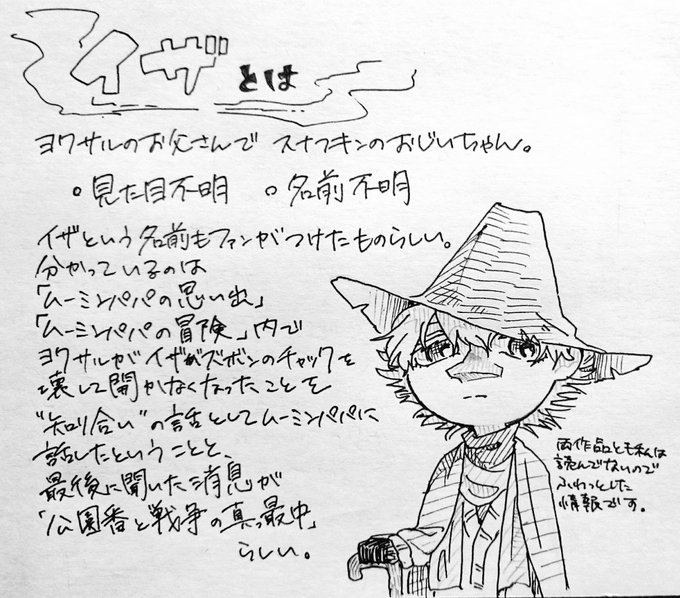 イザとは
ヨクサルのお父さんで スナフキンのおじいちゃん。
。見た目不明 。名前不明
イザという名前もファンがつけたものらしい。
分かっているのは
「ムーミンパパの思い出」
「ムーミンパパの冒険」内で
ヨクサルがイザがズボンのチャックを
壊して開かなくなったことを
"知り合い"の話としてムーミンパパに
話したということと、
最後に聞いた消息が
「公園番と戦争の真っ最中」
らしい。
両作品とも私は
読んでないので
ふわっとした
情報です。